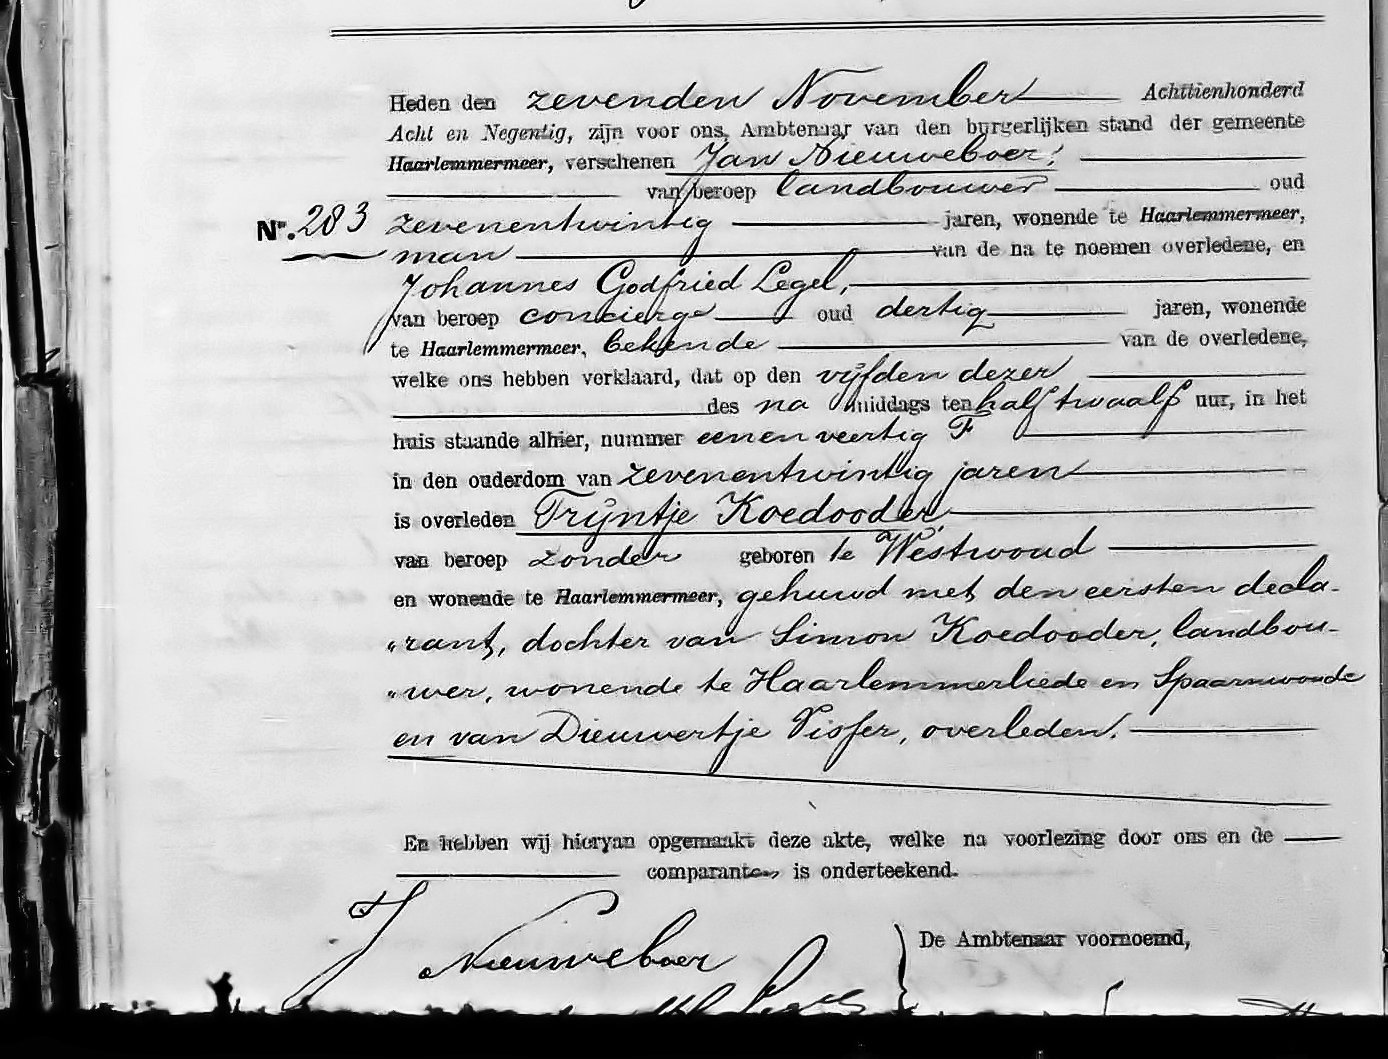 Heden den zevenden November Achttienhonderd
Acht en Negentig, zijn voor ons, Ambtenaar van den burgerlijken stand der gemeente
Haarlemmermeer, verschenen Jan Nieuweboer,
van beroep landbouwer oud
Nr. 283 zevenentwintig jaren, wonende te Haarlemmermeer,
man van de na te noemen overledene, en
Johannes Godfried Legel,
van beroep concierge oud dertig jaren, wonende
te Haarlemmermeer, bekende van de overledene,
welke ons hebben verklaard, dat op den vijfden dezer
des na middags ten half twaalf uur, in het
huis staande alhier, nummer eenenveertig F
in den ouderdom van zevenentwintig jaren
is overleden Trijntje Koedooder,
van beroep zonder geboren te Westwoud
en wonende te Haarlemmermeer, gehuwd met den eersten decla-
"rant, dochter van Simon Koedooder, landbou-
"wer, wonende te Haarlemmerliede en Spaarnwoude
en van Dieuwertje Visser, overleden.
En hebben wij hiervan opgemaakt deze akte, welke na voorlezing door ons en de
comparanten is onderteekend.
J Nieuweboer
De Ambtenaar voornoemd,